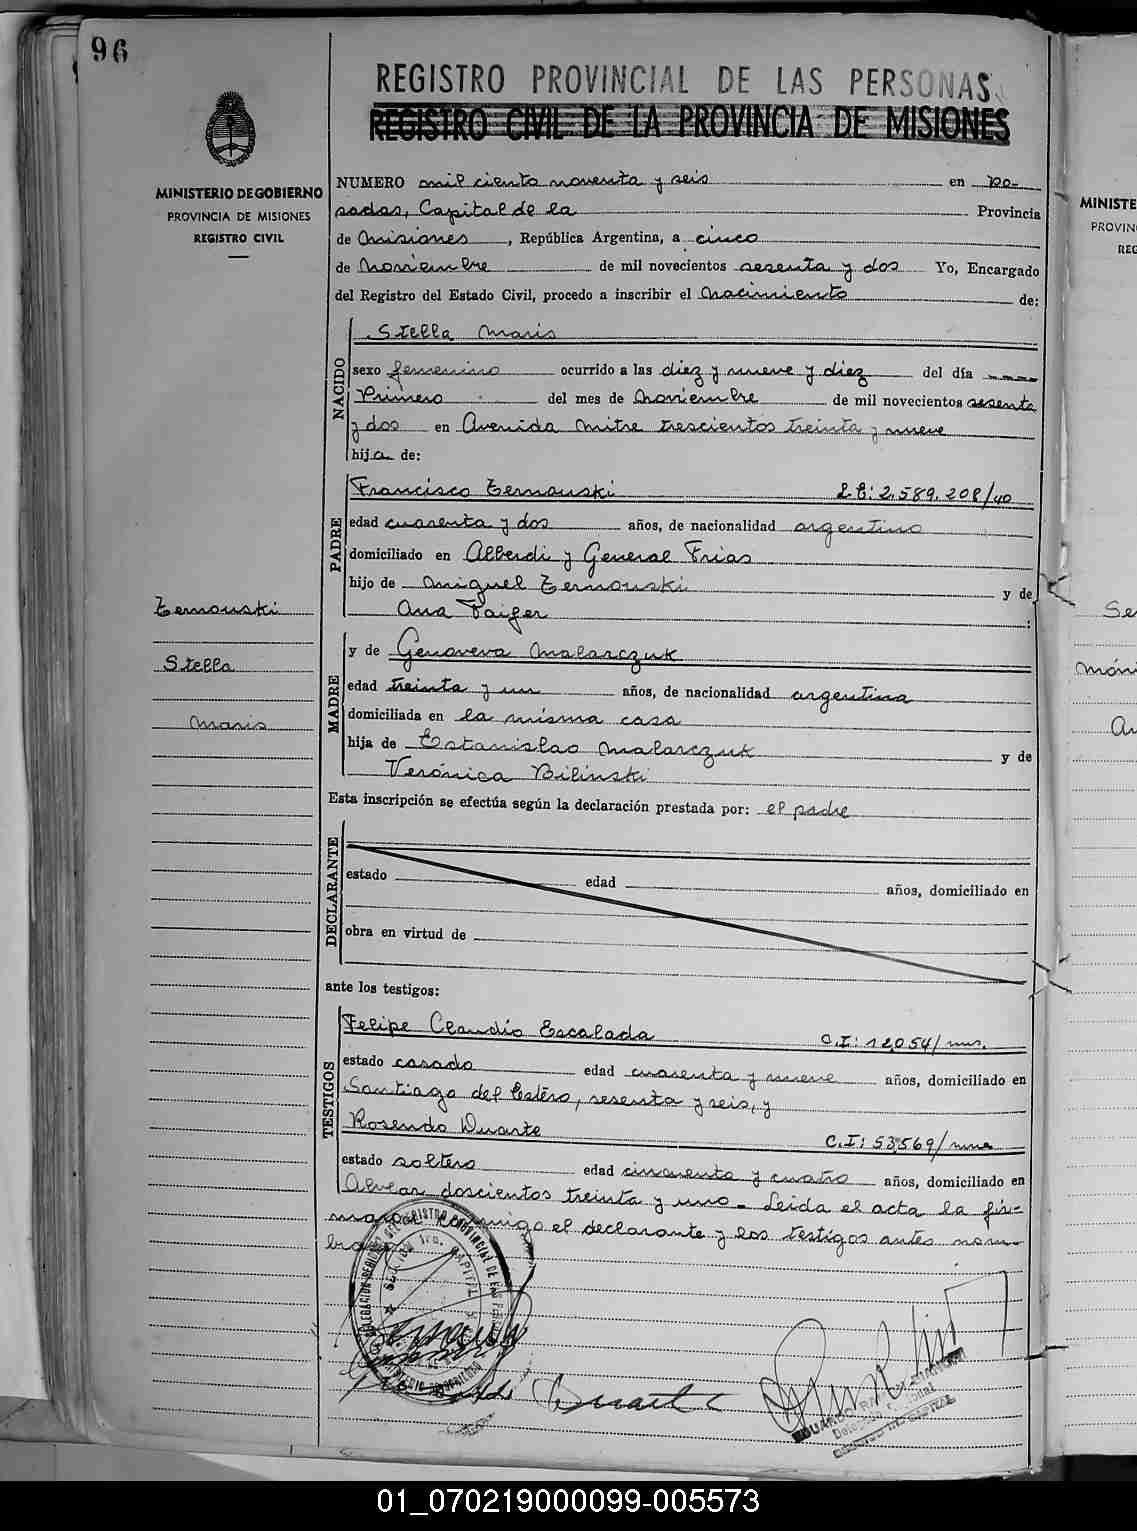 96
REGISTRO PROVINCIAL DE LAS PERSONAS
REGISTRO CIVIL DE LA PROVINCIA DE MISIONES
MINISTERIO DE GOBIERNO
PROVINCIA DE MISIONES
REGISTRO CIVIL
NUMERO mil ciento noventa y seis en Po-
sadas, Capital de la Provincia
de Misiones, República Argentina, a cinco
de Noviembre de mil novecientos sesenta y dos Yo, Encargado
del Registro del Estado Civil, procedo a inscribir el Nacimiento de:
NACIDO
Stella Maris
sexo femenino ocurrido a las diez y nueve y diez del día
Primero del mes de Noviembre de mil novecientos sesenta
y dos en Avenida Mitre trescientos treinta y nueve
hija de:
PADRE
Francisco Zernouski L.E: 2.589.208/40
edad cuarenta y dos años, de nacionalidad argentino
domiciliado en Alberdi y General Frias
hijo de Miguel Zernouski y de
Ana Faifer :
Zernouski
Stella
Maris
MADRE
y de Genoveva Malarczuk
edad treinta y un años, de nacionalidad argentina
domiciliada en la misma casa
hija de Estanislao Malarczuk y de
Verónica Bilinski
Esta inscripción se efectúa según la declaración prestada por: el padre
DECLARANTE
estado edad años, domiciliado en
obra en virtud de
ante los testigos:
TESTIGOS
Felipe Claudio Escalada C.I: 12.054/mns.
estado casado edad cuarenta y nueve años, domiciliado en
Santiago del Estero, sesenta y seis, y
Rosendo Duarte C.I: 53.569/mns
estado soltero edad cincuenta y cuatro años, domiciliado en
Alvear doscientos treinta y uno - Leida el acta la fir-
man conmigo el declarante y los testigos antes nom-
Duarte
MINISTE
PROVIN
REG
Se
Móni
01_070219000099-005573